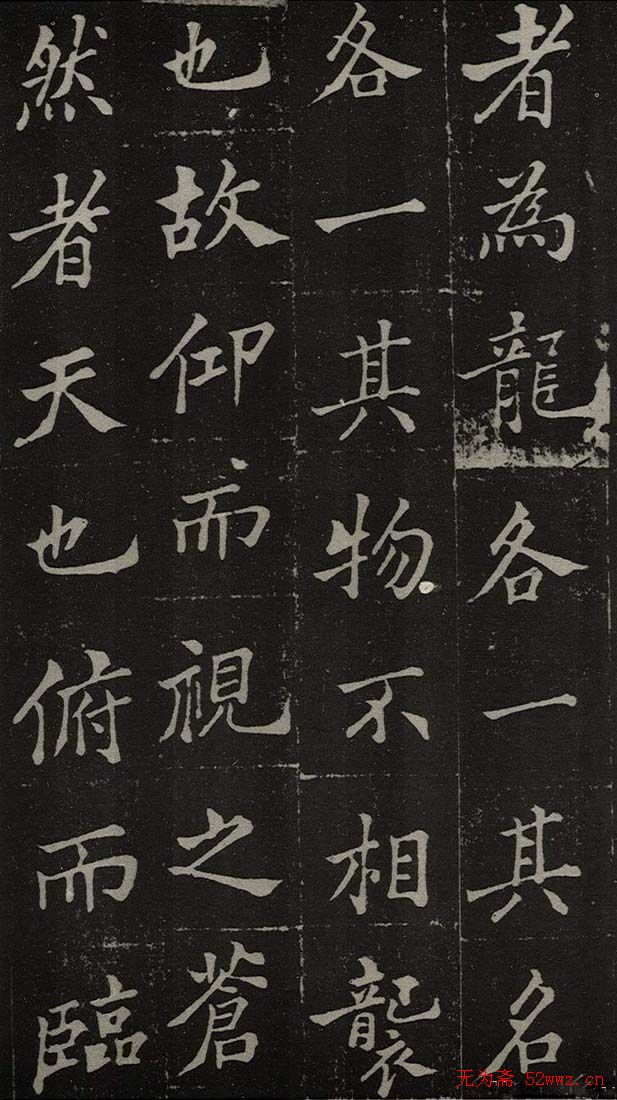 者為龍各一其名
各一其物不相襲
也故仰而視之蒼
然者天也俯而臨
无为斋 52wwz.cn